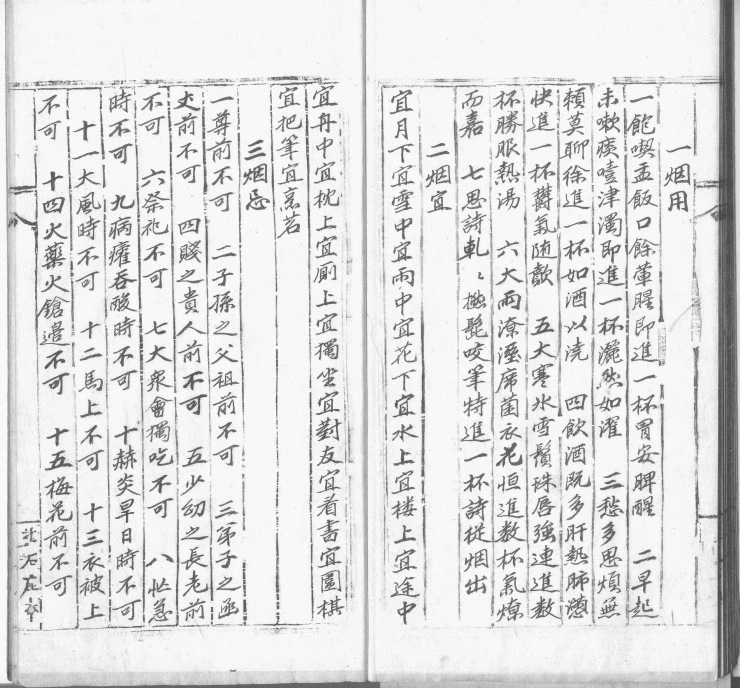 一烟用
一飽喫盂飯口餘葷腥即進一杯胃安脾醒　二早起
未嗽痰噎津濁即進一杯灑然如濯　三愁多思煩無
頼莫聊徐進一杯如酒以澆　四飮酒既多肝熱肺懣
快進一杯欝氣随歕　五大寒氷雪鬚珠唇強連進数
杯勝服熱湯　六大雨潦溼席菌衣花恒進数杯氣燎
而嘉　七思詩軋〻撚髭咬筆特進一杯詩從烟出
二烟宜
宜月下宜雪中宜雨中宜花下宜水上宜楼上宜途中
宜舟中宜枕上宜厠上宜獨坐宜對友宜看書宜圍棋
宜把筆宜烹茗
三烟忌
一尊前不可　二子孫之父祖前不可　三弟子之函
丈前不可　四賤之貴人前不可　五少幼之長老前
不可　六祭祀不可　七大衆會獨吃不可　八忙急
時不可　九病癨吞酸時不可　十赫炎旱日時不可
十一大風時不可　十二馬上不可　十三衣被上
不可　十四火藥火鎗邉不可　十五梅花前不可